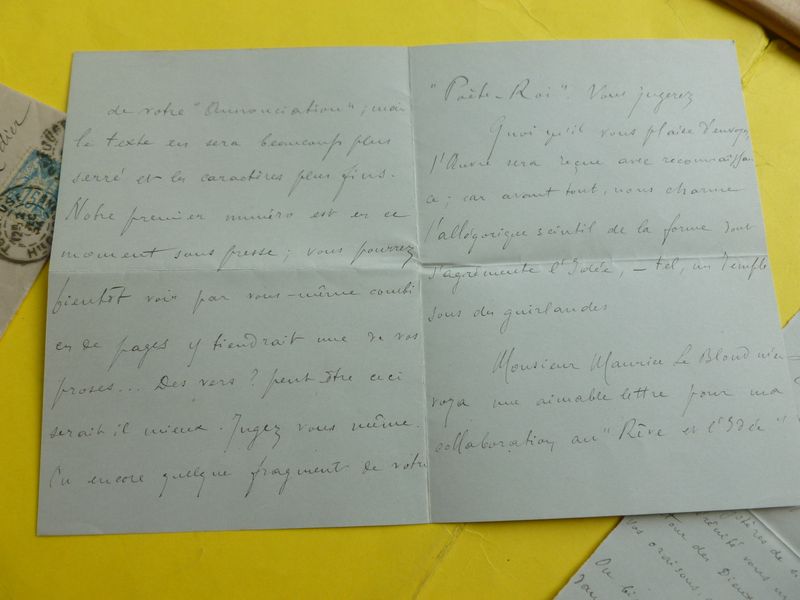 de votre "Annonciation"; mais
le texte en sera beaucoup plus
serré et les caractères plus fins.
Notre premier numéro est en ce
moment sous presse; vous pourrez
bientôt voir par vous-même combi
en de pages y tiendrait une de vos
proses... Des vers? peut être ceci
serait il mieux. Jugez vous même.
Ou encore quelque fragment de votre
"Poète-Roi". Vous jugerez
Quoi qu'il vous plaise d'envoyer
l'Œuvre sera reçue avec reconnaissan
ce; car avant tout, nous charme
l'allégorique scintil de la forme dont
s'agrémente l'Idée, — tel, un Temple
sous des guirlandes
Monsieur Maurice Le Blond m'en-
voya une aimable lettre pour ma
collaboration au "Rêve et l'Idée"
dier
tères de
vous
tour des Dieux
Vos oraisons,
Ou bi